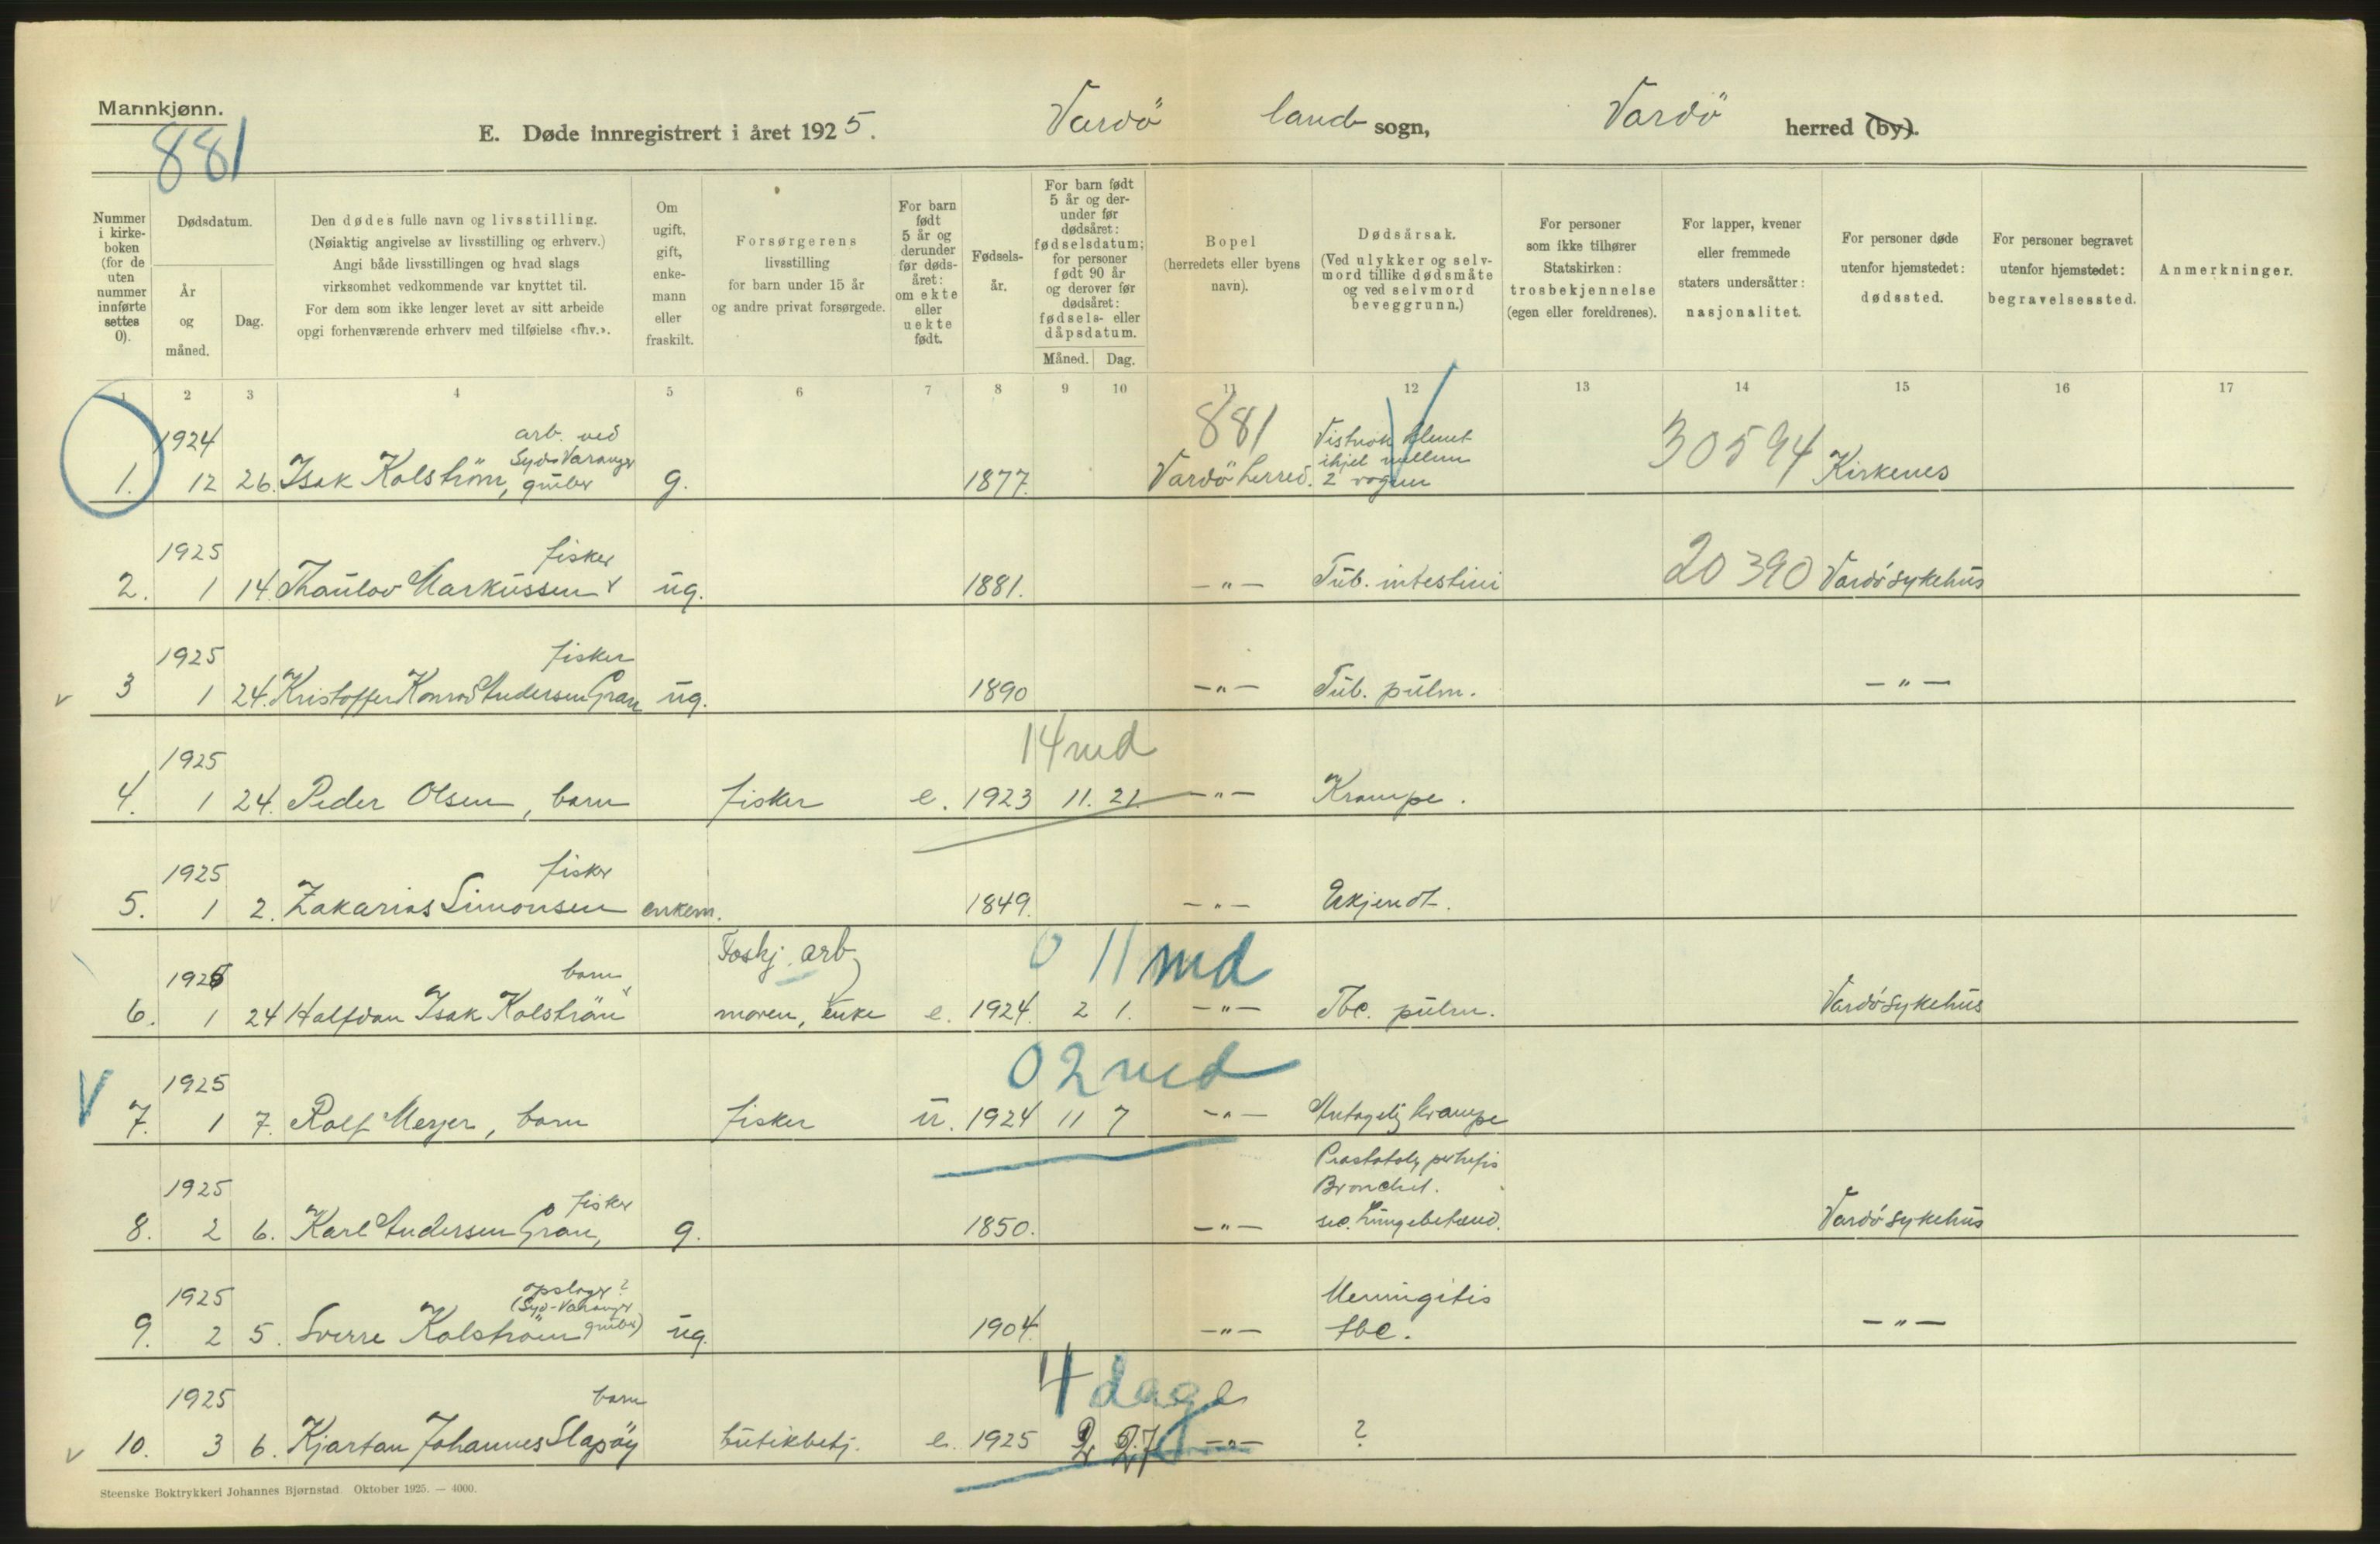 Mannkjønn.
881
E. Døde innregistrert i året 1925.
Vardö land sogn,
Vardö herred (by).
Nummer i kirke-boken (for de uten nummer innførte settes 0).
Dødsdatum.
År og måned.
Dag.
Den dødes fulle navn og livsstilling.
(Nøiaktig angivelse av livsstilling og erhverv.)
Angi både livsstillingen og hvad slags
virksomhet vedkommende var knyttet til.
For dem som ikke lenger levet av sitt arbeide
opgi forhenværende erhverv med tilføielse «fhv.».
Om ugift, gift, enke-mann eller fraskilt.
Forsørgerens
livsstilling
for barn under 15 år
og andre privat forsørgede.
For barn født 5 år og derunder før døds-året: om ekte eller uekte født.
Fødsels-år.
For barn født 5 år og der-under før dødsåret: fødselsdatum; for personer født 90 år og derover før dødsåret: fødsels- eller dåpsdatum.
Måned. Dag.
Bopel
(herredets eller byens
navn).
Dødsårsak.
(Ved ulykker og selv-
mord tillike dødsmåte
og ved selvmord
beveggrunn.)
For personer
som ikke tilhører
Statskirken:
trosbekjennelse
(egen eller foreldrenes).
For lapper, kvener
eller fremmede
staters undersåtter:
nasjonalitet.
For personer døde
utenfor hjemstedet:
dødssted.
For personer begravet
utenfor hjemstedet:
begravelsessted.
Anmerkninger.
1 2 3 4 5 6 7 8 9 10 11 12 13 14 15 16 17
1924 arb. ved 881 Vistnok klemt
Syd-Varanger ihjel mellem
1. 12 26. Isak Kolström, gruber g. 1877. Vardö herred. 2 vogner 30594 Kirkenes
1925 fisker
2. 1 14. Thaulov Markussen ug. 1881. -"- Tub. intestini 20390 Vardö sykehus
1925 fisker
3 1 24. Kristoffer Konrad Andersen Gran ug. 1890 -"- Tub. pulm. -"-
1925 14 md
4. 1 24. Peder Olsen, barn fisker e. 1923 11. 21. -"- Krampe.
1925 fisker
5. 1 2. Zakarias Simonsen enkem. 1849. -"- Ukjendt.
1925 barn Foskj. arb 0 11 md
6. 1 24 Halfdan Isak Kolström moren, enke e. 1924. 2 1. -"- Tbc. pulm. Vardö sykehus
1925 0 2 md
7. 1 7. Rolf Meyer, barn fisker u. 1924 11 7 -"- Antagelig krampe
1925 fisker Bronchit.
8. 2 6. Karl Andersen Gran, g. 1850. -"- sec. Lungebetænd. Vardö sykehus
1925 (Syd-Varanger Meningitis
9. 2 5. Sverre Kolström gruber) ug. 1904. -"- tbc. -"-
1925 barn 4 dage
10. 3 6. Kjartan Johannes Slapöy butikbetj. e. 1925 2 27 -"- ?
Steenske Boktrykkeri Johannes Bjørnstad. Oktober 1925. — 4000.